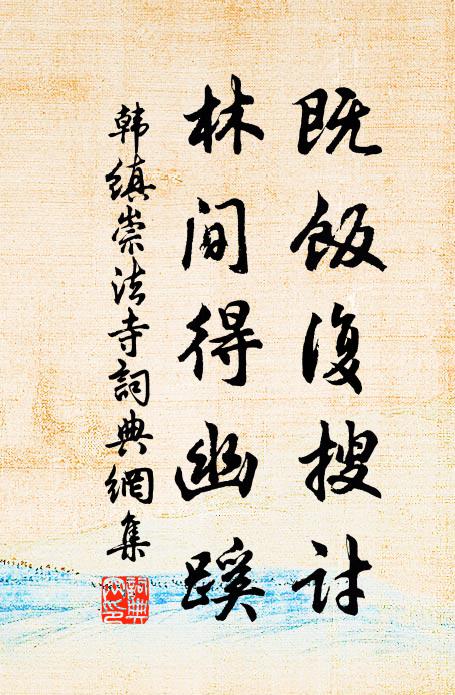 既飯復搜討
林間得幽蹊
韩縝崇法寺詞典網集